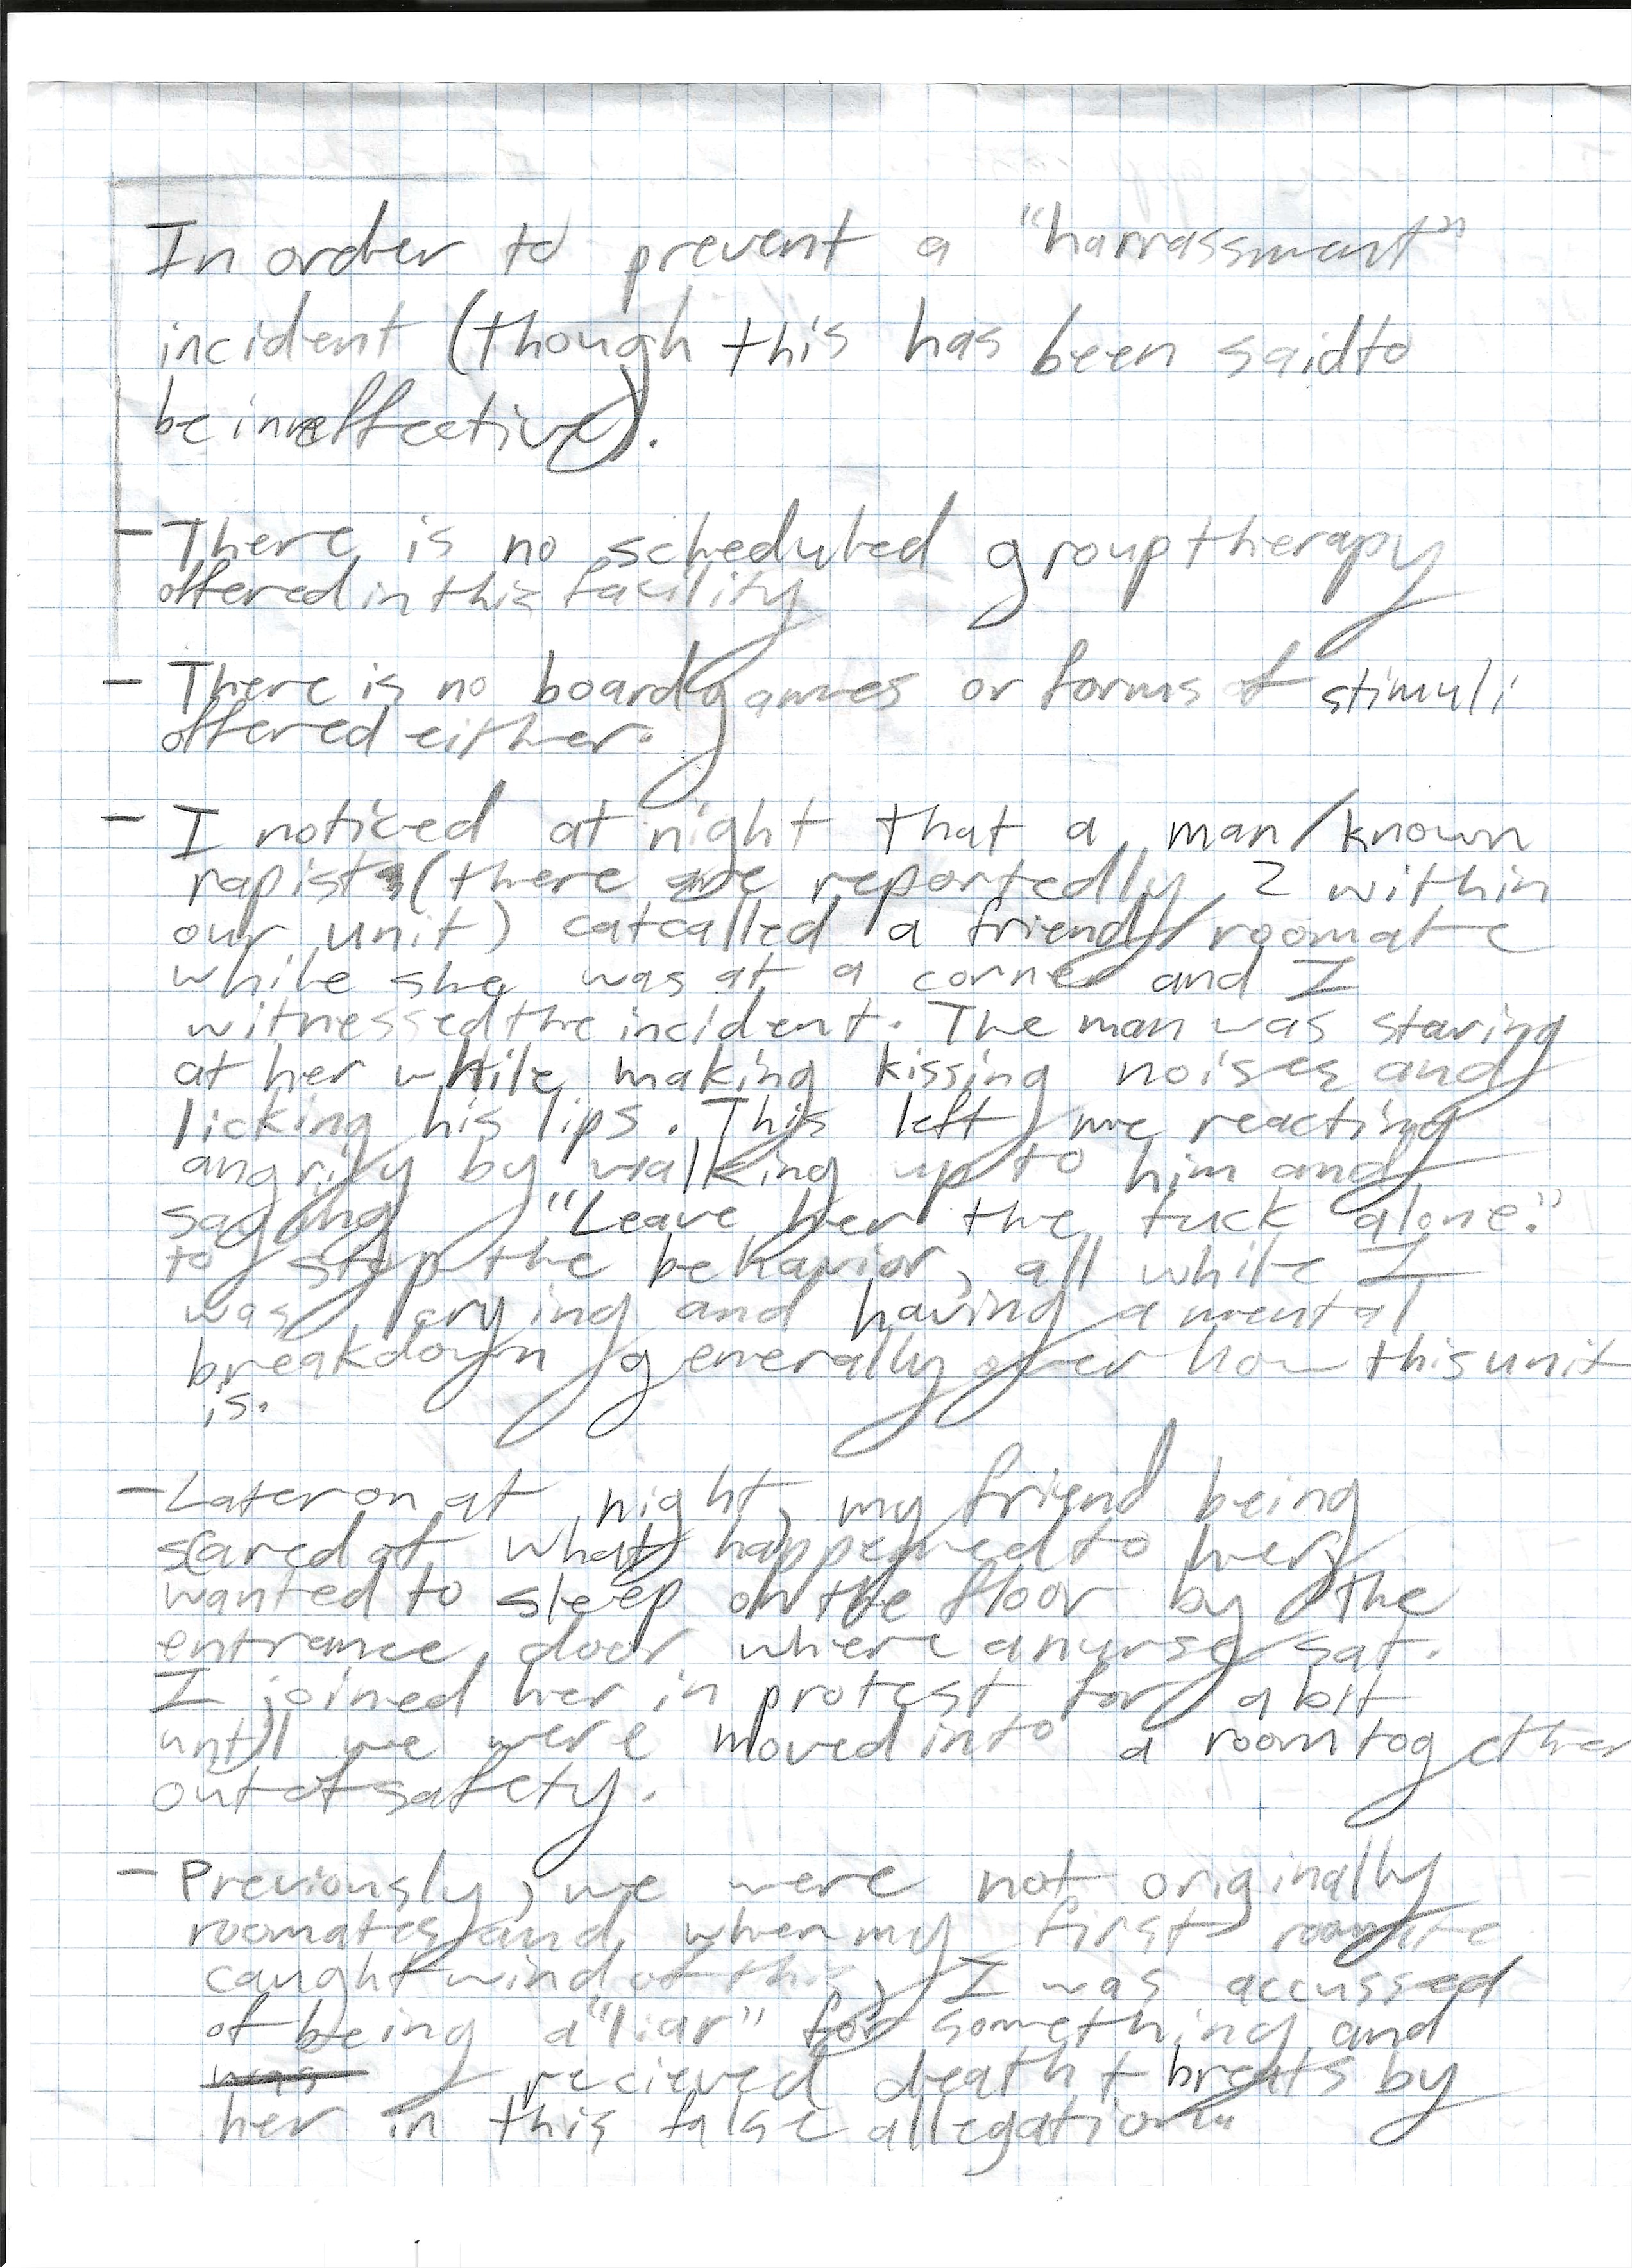 In order to prevent a "harrassment"
incident (though this has been said to
be ineffective).
- There is no scheduled group therapy
offered in this facility
- There is no board games or forms of stimuli
offered either.
- I noticed at night that a man/known
rapist (there are reportedly 2 within
our unit) catcalled a friend/roomate
while she was at a corner and I
witnessed the incident. The man was staring
at her while making kissing noises and
licking his lips. This left me reacting
angrily by walking up to him and
saying "Leave her the fuck alone."
to stop the behavior, all while I
was crying and having a mental
breakdown generally over how this unit
is.
- Later on at night, my friend being
scared of what happened to her,
wanted to sleep on the floor by the
entrance door where a nurse sat.
I joined her in protest for a bit
until we were moved into a room together
out of safety.
- Previously, we were not originally
roomates and when my first roomate
caught wind of this, I was accussed
of being a "liar" for something and
was recieved death threats by
her in this false allegation.